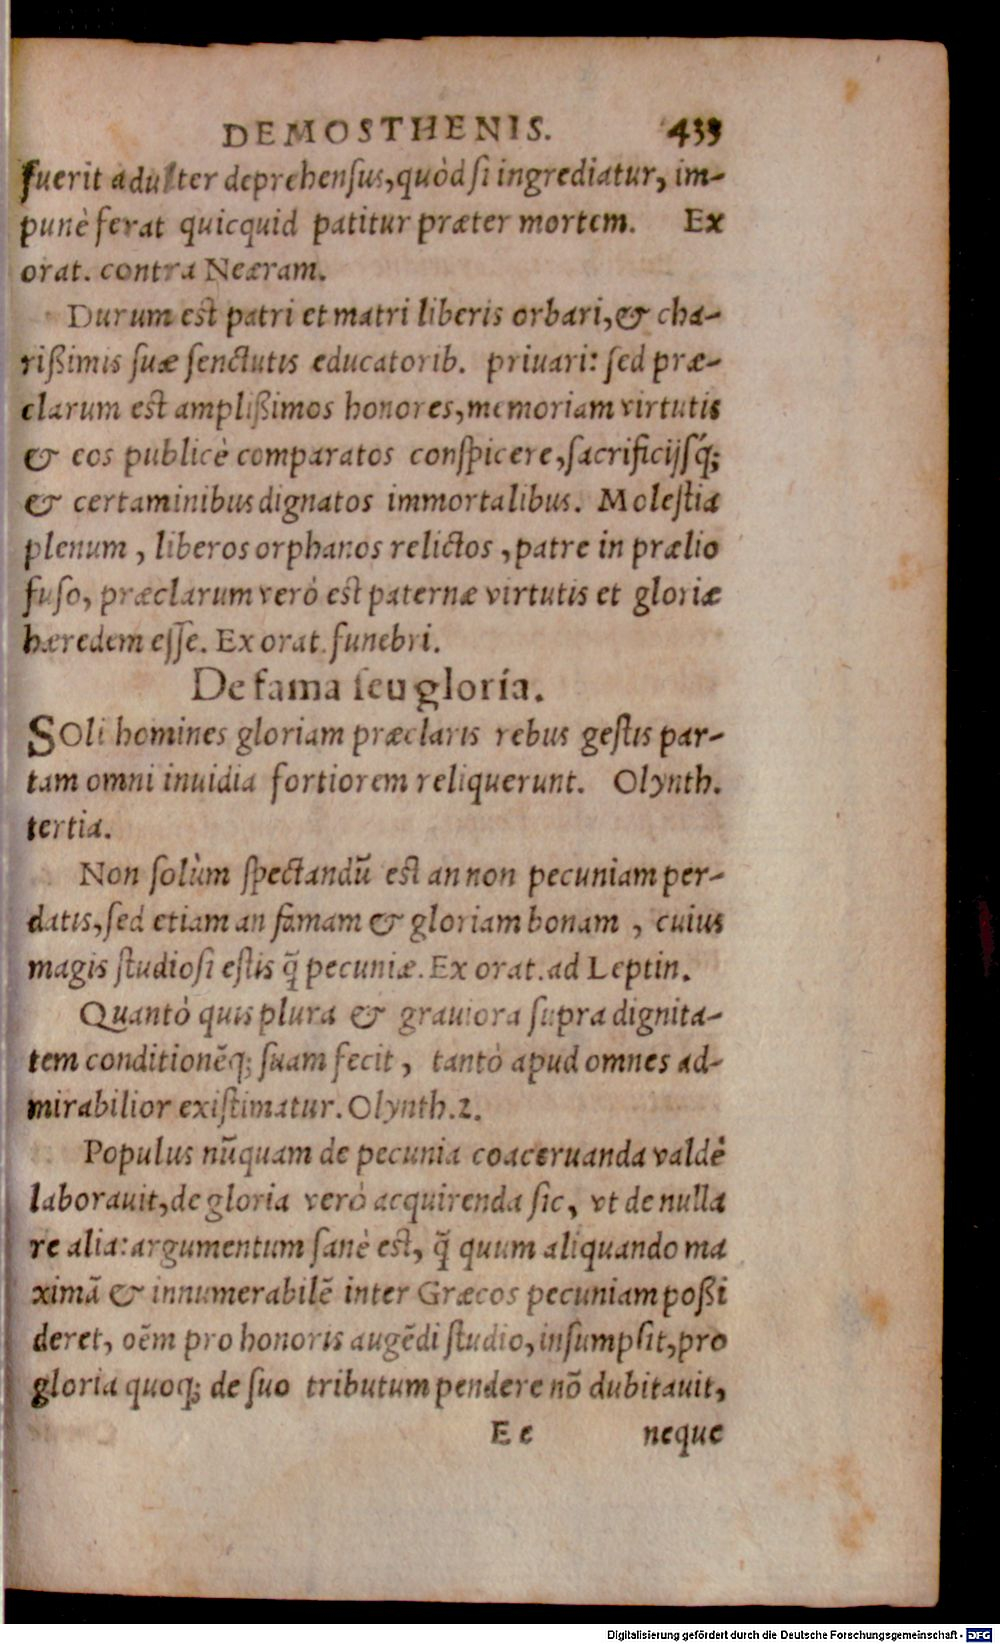 DEMOSTHENIS. 433
fuerit adulter deprehensus, quòd si ingrediatur, im-
punè ferat quicquid patitur præter mortem. Ex
orat. contra Neæram.
Durum est patri et matri liberis orbari, & cha-
rißimis suæ senctutis educatorib. priuari: sed præ-
clarum est amplißimos honores, memoriam virtutis
& eos publicè comparatos conspicere, sacrificijsq́;
& certaminibus dignatos immortalibus. Molestia
plenum, liberos orphanos relictos, patre in prælio
fuso, præclarum verò est paternæ virtutis et gloriæ
hæredem esse. Ex orat. funebri.
De fama seu gloria.
SOli homines gloriam præclaris rebus gestis par-
tam omni inuidia fortiorem reliquerunt. Olynth.
tertia.
Non solùm spectandũ est an non pecuniam per-
datis, sed etiam an famam & gloriam bonam, cuius
magis studiosi estis q̃ pecuniæ. Ex orat. ad Leptin.
Quantò quis plura & grauiora supra dignita-
tem conditionẽq; suam fecit, tantò apud omnes ad-
mirabilior existimatur. Olynth. 2.
Populus nũquam de pecunia coaceruanda valdè
laborauit, de gloria verò acquirenda sic, vt de nulla
re alia: argumentum sanè est, q̃ quum aliquando ma
ximã & innumerabilẽ inter Græcos pecuniam poßi
deret, oẽm pro honoris augẽdi studio, insumpsit, pro
gloria quoq; de suo tributum pendere nõ dubitauit,
E e neque
Digitalisierung gefördert durch die Deutsche Forschungsgemeinschaft - DFG